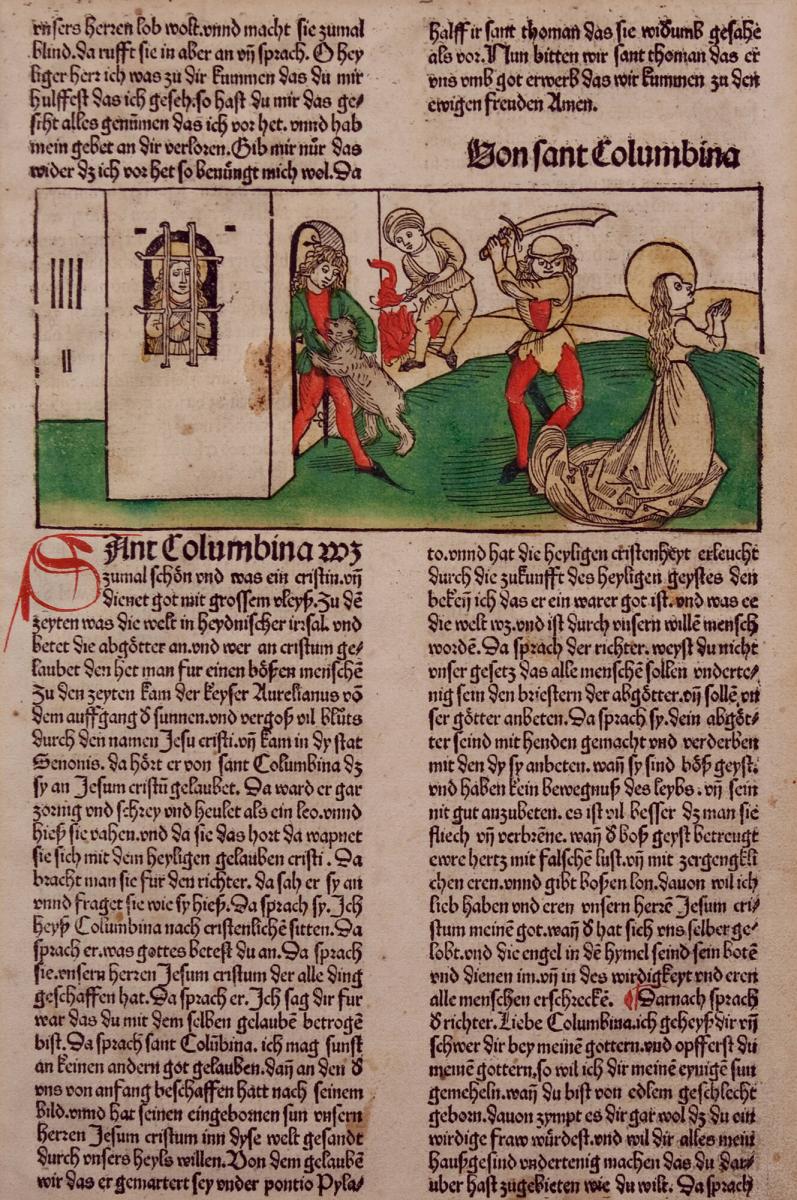 vnsers herren lob wolt.vnnd macht sie zumal
blind.da rufft sie in aber an vn̄ sprach. O hey
liger herr ich was zu dir kummen das du mir
hulffest das ich geseh.so hast du mir das ge⸗
sicht alles genūmen das ich vor het. vnnd hab
mein gebet an dir verloren.Gib mir nůr das
wider dz ich vor het so benůngt mich wol.Da
halff ir sant thoman das sie widumb gesahe
als vor.Nun bitten wir sant thoman das er
vns vmb got erwerb das wir kummen zu den
ewigen freuden Amen.
Von sant Columbina
SAnt Columbina wz
zumal schön vnd was ein cristin.vn̄
dienet got mit grossem vleyß.Zu dē
zeyten was die welt in heydnischer irrsal. vnd
betet die abgötter an.vnd wer an cristum ge⸗
laubet den het man fur einen bößen menschē
Zu den zeyten kam der keyser Aurelianus vō
dem auffgang d̓ sunnen.vnd vergoß vil blůts
durch den namen Jesu cristi.vn̄ kam in dy stat
Senonis. da hört er von sant Columbina dz
sy an Jesum cristū gelaubet. Da ward er gar
zornig vnd schrey vnd heulet als ein leo.vnnd
hieß sie vahen.vnd da sie das hort da wapnet
sie sich mit dem heyligen gelauben cristi. Da
bracht man sie fur den richter. da sah er sy an
vnnd fraget sie wie sy hieß. Da sprach sy. Ich
heyß Columbina nach cristenlichē sitten. Da
sprach er.was gottes betest du an. Da sprach
sie.vnsern herren Jesum cristum der alle ding
geschaffen hat. Da sprach er. Ich sag dir fur
war das du mit dem selben gelaubē betrogē
bist. Da sprach sant Colūbina. ich mag sunst
an keinen andern got gelauben.dan̄ an den d̓
vns von anfang beschaffen hatt nach seinem
bild.vnnd hat seinen eingebornen sun vnsern
herren Jesum cristum inn dyse welt gesandt
durch vnsers heyls willen. Von dem gelaubē
wir das er gemartert sey vnder pontio Pyla⸗
to.vnnd hat die heyligen cristenheyt erleucht
durch die zukunfft des heyligen geystes den
beken̄ ich das er ein warer got ist. vnd was ee
die welt wz.vnd ist durch vnsern willē mensch
wordē. Da sprach der richter. weyst du nicht
vnser gesetz das alle menschē sollen vnderte⸗
nig sein den briestern der abgötter.vn̄ sollē vn
ser götter anbeten. Da sprach sy.dein abgöt⸗
ter seind mit henden gemacht vnd verderben
mit den dy sy anbeten. wan̄ sy sind böß geyst.
vnd haben kein bewegnuß des leybs. vn̄ sein
nit gut anzubeten. es ist vil besser dz man sie
fliech vn̄ verbrēne. wan̄ d̓ boß geyst betreugt
ewre hertz mit falschē lust.vn̄ mit zergengkli
chen eren.vnnd gibt boßen lon.dauon wil ich
lieb haben vnd eren vnsern herrē Jesum cri⸗
stum meinē got.wan̄ d̓ hat sich vns selber ge⸗
lobt.vnd die engel in dē hymel seind sein botē
vnd dienen im.vn̄ in des wirdigkeyt vnd eren
alle menschen erschreckē. Darnach sprach
d̓ richter. Liebe Columbina.ich geheyß dir vn̄
schwer dir bey meinē gottern.vnd opfferst du
meinē gottern,so wil ich dir meinē eynigē sun
gemeheln.wan̄ du bist von edlem geschlecht
geborn.dauon zympt es dir gar wol dz du ein
wirdige fraw würdest.vnd wil dir alles mein
haußgesind vndertenig machen das du dar⸗
uber hast zugebieten wie du wilt. Da sprach